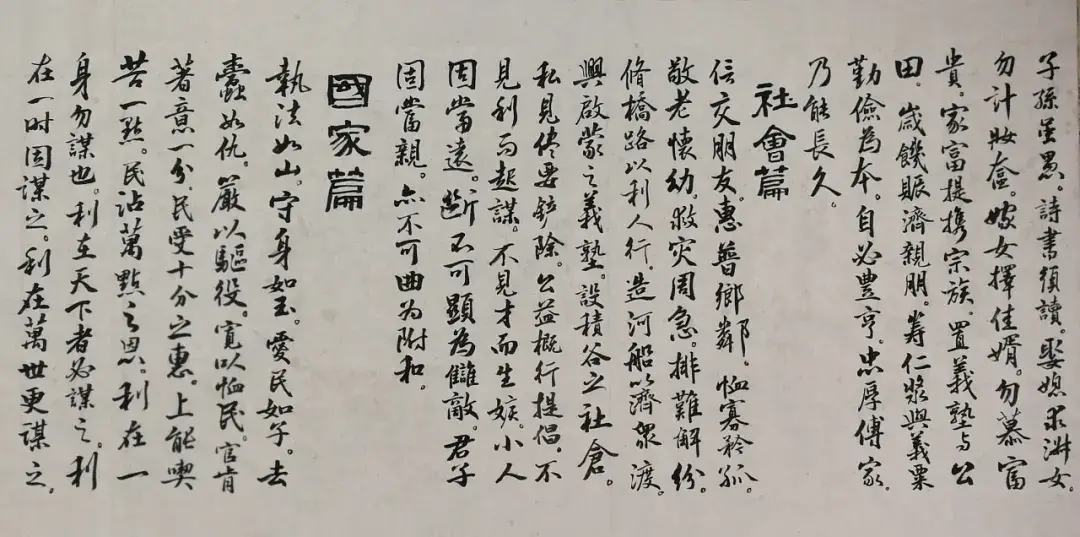 子孫虽愚。詩書須讀。娶媳求淑女。
勿計妝奩。嫁女擇佳婿。勿慕富
貴。家富提携宗族。置義塾与公
田。歲饑賑濟親朋。筹仁漿與義粟
勤儉為本。自必豊亨。忠厚傳家。
乃能長久。
社會篇
信交朋友。惠普鄉鄰。恤寡矜孤。
敬老懷幼。救灾周急。排難解紛。
脩橋路以利人行。造河船以濟衆渡。
興啟蒙之義塾。設積谷之社倉。
私見侭要鏟除。公益概行提倡。不
見利而起謀。不見才而生嫉。小人
固當遠。斷不可顯為讎敵。君子
固當親。亦不可曲为附和。
國家篇
執法如山。守身如玉。愛民如子。去
蠹如仇。嚴以驅役。寬以恤民。官肯
著意一分。民受十分之惠。上能喫
苦一點。民沾萬點之恩。利在一
身勿謀也。利在天下者必謀之。利
在一时固謀之。利在萬世更謀之。